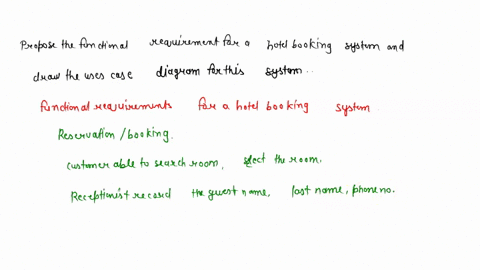 Propose the functional requirement for a hotel booking system and
draw the uses case diagram for this system..
functional requirements for a hotel booking system
Reservation/booking.
customer able to search room, select the room.
Receptionist record the guest name, last name, phone no.